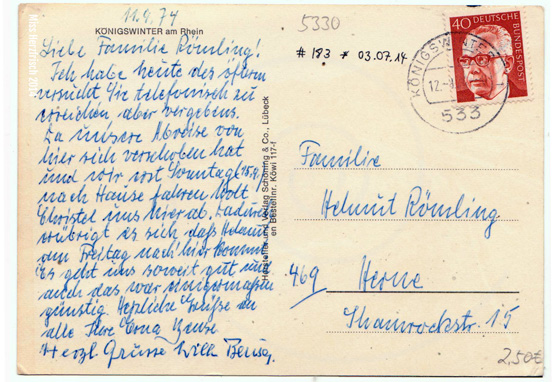 11.9.74
KÖNIGSWINTER am Rhein
Liebe Familie Römling!
Ich habe heute des öfteren
versucht Sie telefonisch zu
erreichen aber vergebens.
Da unsere Abreise von
hier sich verschoben hat
und wir erst Sonntag (15.9)
nach Hause fahren holt
Christel uns hier ab. Dadurch
erübrigt es sich, daß Helmut
am Freitag nach hier kommt
Es geht uns soweit gut und
auch das war einigermaßen
günstig Herzliche Grüße an
alle Ihre Erna
Herzl. Grüsse Willi
Hersteller und Verlag Schöning & Co., Lübeck
en Bestellnr. Köwi 117-f
5330
#183 * 03.07.14
40 DEUTSCHE BUNDESPOST
KÖNIGSWINTER
12.-9
533
Familie
Helmut Römling
469 Herne
Shamrockstr. 15
2,50€